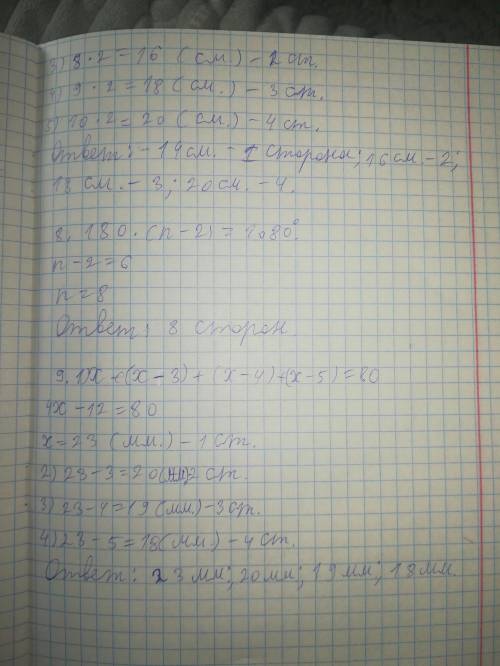 3) 8·2=16 (см.) – 2 ст.
4) 9·2=18 (см.) – 3 ст.
5) 10·2=20 (см.) – 4 ст.
Ответ: – 14см. – 1 сторона; 16см. – 2;
18 см. – 3; 20см. – 4.
8. 180·(n-2)=1080°.
n-2=6
n=8
Ответ: 8 сторон.
9. 1)x+(x-3)+(x-4)+(x-5)=80
4x-12=80
x=23 (мм.) – 1 ст.
2) 23-3=20(мм)2 ст.
3) 23-4=19(мм.)-3ст.
4) 23-5=18(мм.) – 4 ст.
Ответ: 23мм; 20мм; 19мм; 18мм.